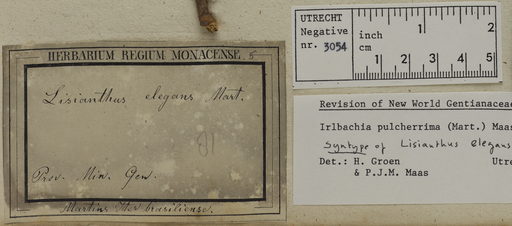 HERBARIUM REGIUM MONACENSE.
Lisianthus elegans Mart.
Prov. Min. Gen.
Martius Iter brasiliense.
UTRECHT
Negative
nr. 3054
inch
cm
1 2
1 2 3 4 5
Revision of New World Gentianaceae
Irlbachia pulcherrima (Mart.) Maas
Syntype of Lisianthus elegans
Det.: H. Groen Utre
& P.J.M. Maas